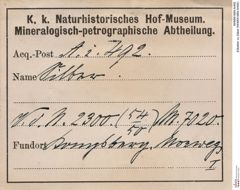 K. k. Naturhistorisches Hof-Museum.
Mineralogisch-petrographische Abtheilung.
Acq.-Post A. i. 492.
Name Silber.
V. d. N. 2300. (54/50) M. 7020.
Fundort Kongsberg, Norweg.
I